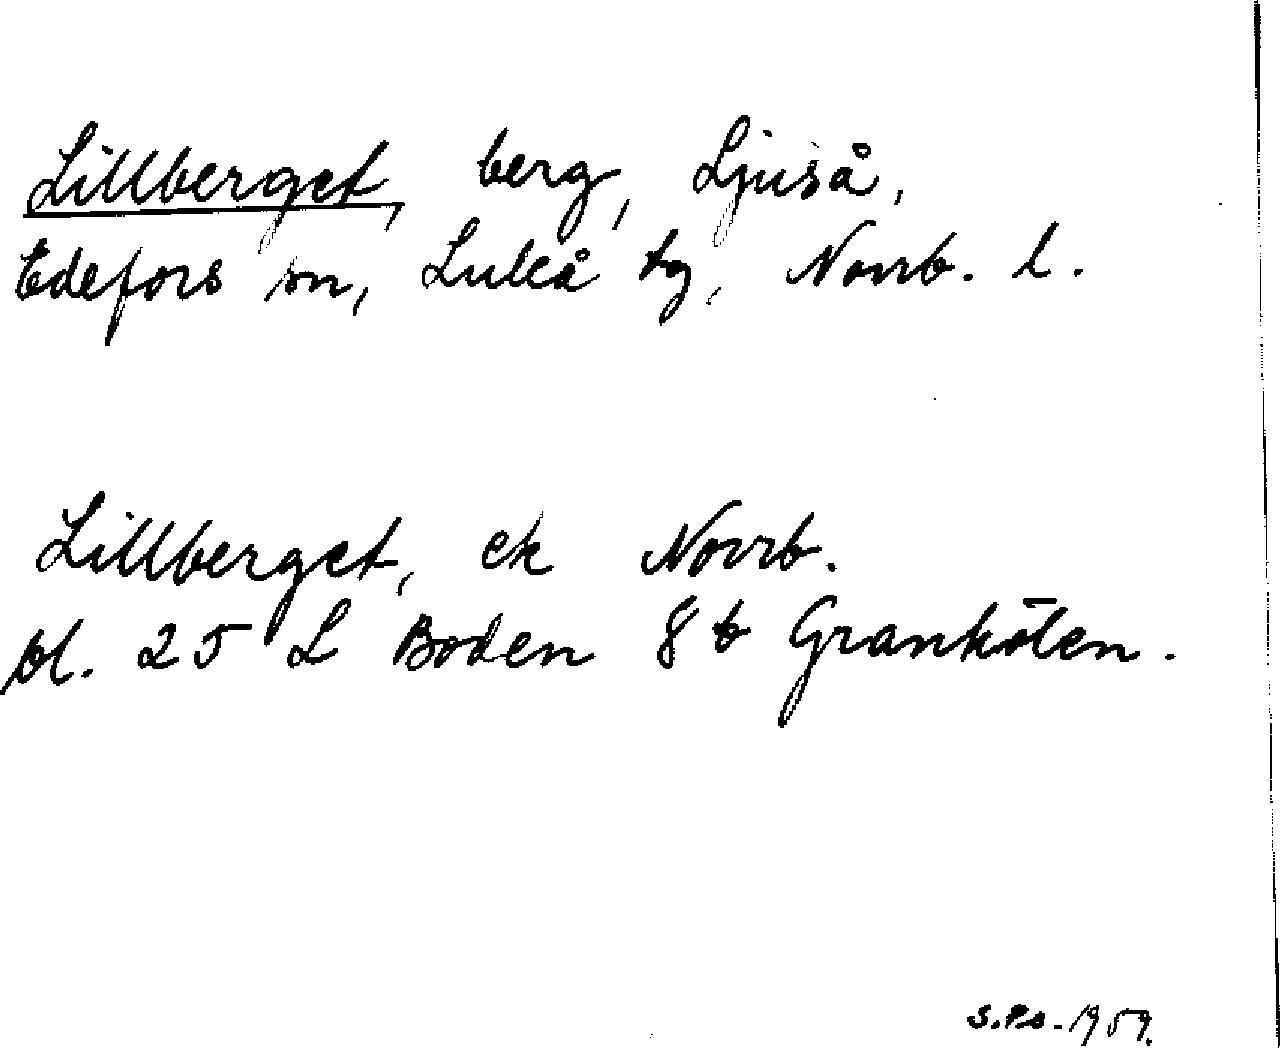 Lillberget, berg, Ljuså,
Edefors sn, Luleå tg, Norrb. l.
Lillberget, ek Norrb.
bl. 25 L Boden 8 b Granhölen.
S.Ps. 1959.